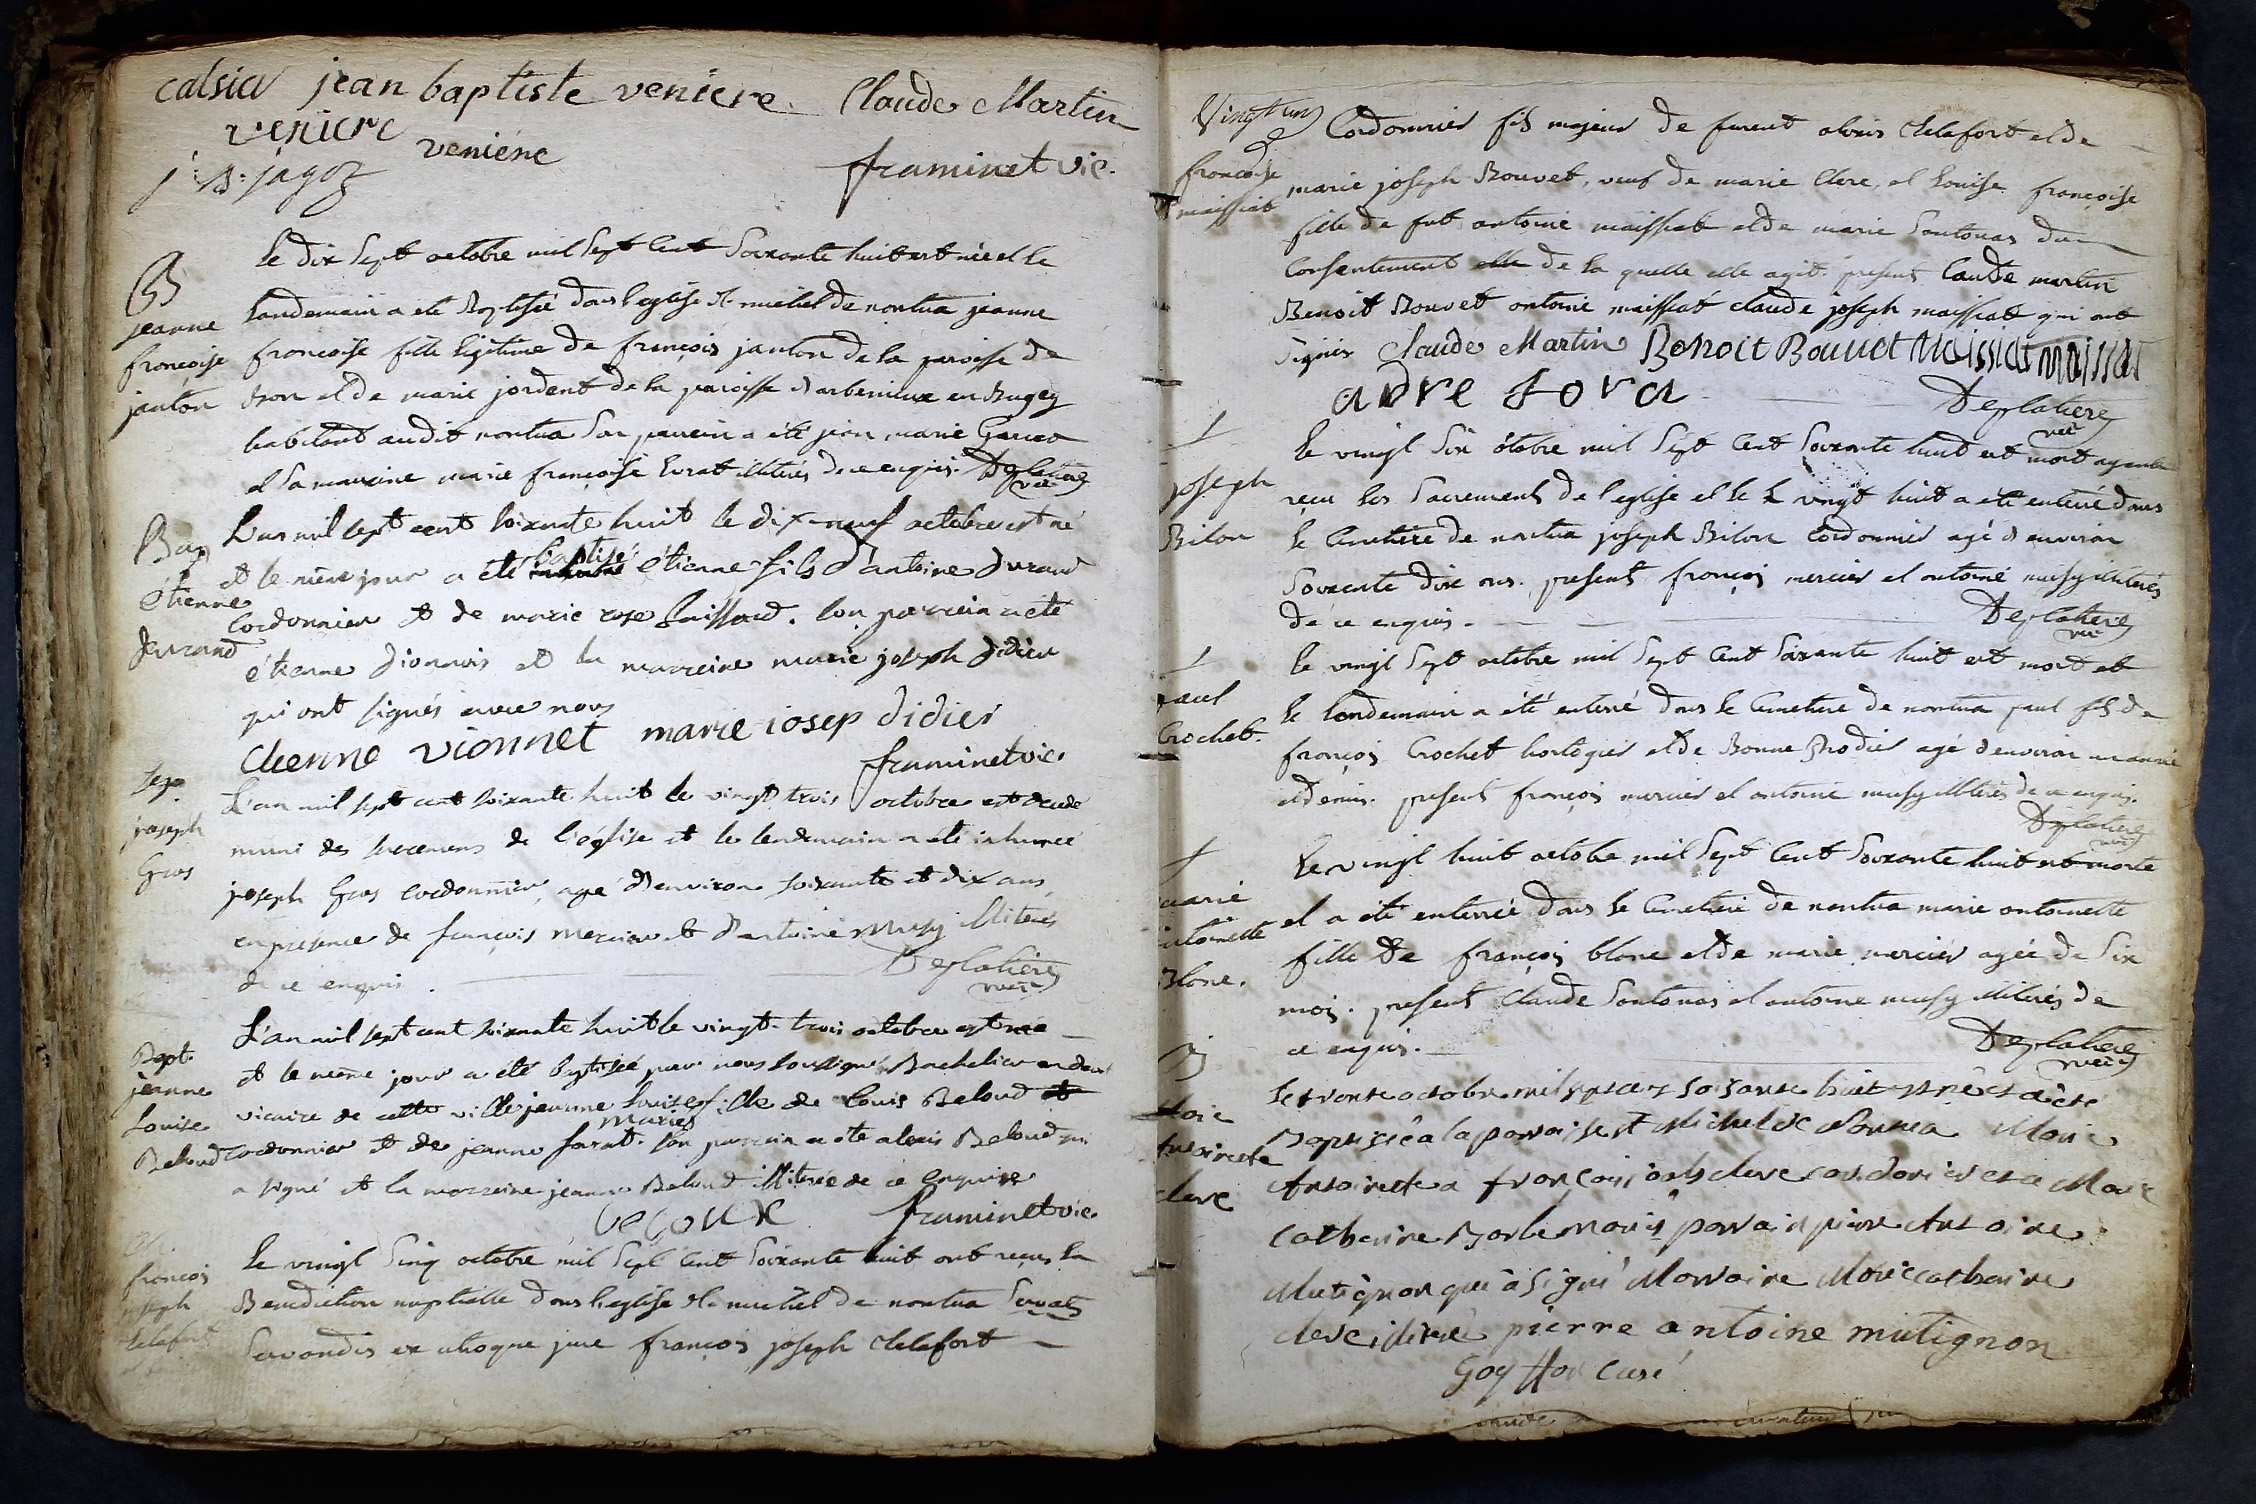 catsia jean baptiste veniere. Claude Martin
veniere veniere
j: B: jagoz framinet vic.
B
jeanne
francoise
janton
Le dix sept octobre mil sept cent soixante huit est née et le
landemain a eté Baptisée dans l'eglise st michel de nantua jeanne
francoise fille legitime de françois janton de la paroisse de
Bron et de marie jordent de la paroisse d'arbenieux en Bugey
habitant audit nantua son parrein a été jean marie
et sa maraine marie françoise Evrat illiterés de ce enquis. Deplatiere
vic
Bap
étienne
Durand
L'an mil sept cent soixante huit le dix-neuf octobre est né
et le même jour a été baptisé étienne fils d'antoine durand
Cordonnier et de marie rose . son parrein a été
étienne vionnois et la marreine marie joseph didier
qui ont signés avec nous
etienne vionnet marie iosep didier
framinet vic.
Sep.
joseph
Gros
L'an mil sept cent soixante huit le vingt trois octobre est decedé
muni des sacremens de l'église et le lendemain a été inhumé
joseph Gros cordonnier, agé d'environ soixante et dix ans
en presence de françois mercier et d'antoine musy illiterés
de ce enquis. Deplatiere
vic
Bapt.
jeanne
Louise
Beloud
L'an mil sept cent soixante huit le vingt-trois octobre est née
et le même jour a été baptisée par nous soussigné Bachelier en droit
vicaire de cette ville jeanne louise fille de louis Beloud et
mariés
cordonnier et de jeanne . son parrein a été alexis Beloud qui
a signé et la marreine jeanne Beloud illiterée de ce enquise
beloux framinet vic.
françois
joseph
chelafort
Le vingt Cinq octobre mil sept cent soixante huit ont reçus la
Benediction nuptialle dans l'eglise st michel de nantua servatis
servandis ex utroque jure françois joseph chelafort
Vingt un
francoise
maissiat
Cordonnier fils majeur de furent alexis chelafort et de
marie joseph Bouvet, veuf de marie Clerc, et Louise françoise
fille de fut antoine maissiat et de marie santonas du
Consentement de la quelle elle agit. presents Claude martin
Benoit Bouvet antoine maissiat claude joseph maissiat qui ont
signés Claude Martin Benoit Bouvet Maissiat maissiat
adre Jova Deplatiere
vic
joseph
Bilon
Le vingt six octobre mil sept cent soixante huit est mort ayant
reçu les sacrements de l'eglise et le vingt huit a été enterré dans
le Cimetiere de nantua joseph Bilon cordonnier agé d'environ
soixante dix ans. presents françois mercier et antoine musy illiterés
de ce enquis. Deplatiere
vic
paul
Crochet.
Le vingt sept octobre mil sept cent soixante huit est mort et
le landemain a été enterré dans le Cimetiere de nantua paul fils de
françois Crochet horloger et de Bonne Brodier agé d'environ un année
et demis. presents françois mercier et antoine musy illiterés de ce enquis.
Deplatiere
vic
marie
antoinette
Blanc.
Le vingt huit octobre mil sept cent soixante huit est morte
et a été enterrée dans le Cimetiere de nantua marie antoinette
fille de françois blanc et de marie mercier agée de six
mois. presents Claude santonas et antoine musy illiterés de
ce enquis. Deplatiere
vic
Marie
Antoinette
clerc
Le trente octobre mil sept cens soixante huit est née et a été
Baptisée a la paroisse st Michel de Nantua Marie
Antoinette a françois clerc cordonier et a Marie
catherine mariés parrain pierre Antoine
Mutignon qui a signé Marraine Marie catherine
clerc iliterée pierre antoine mutignon
curé